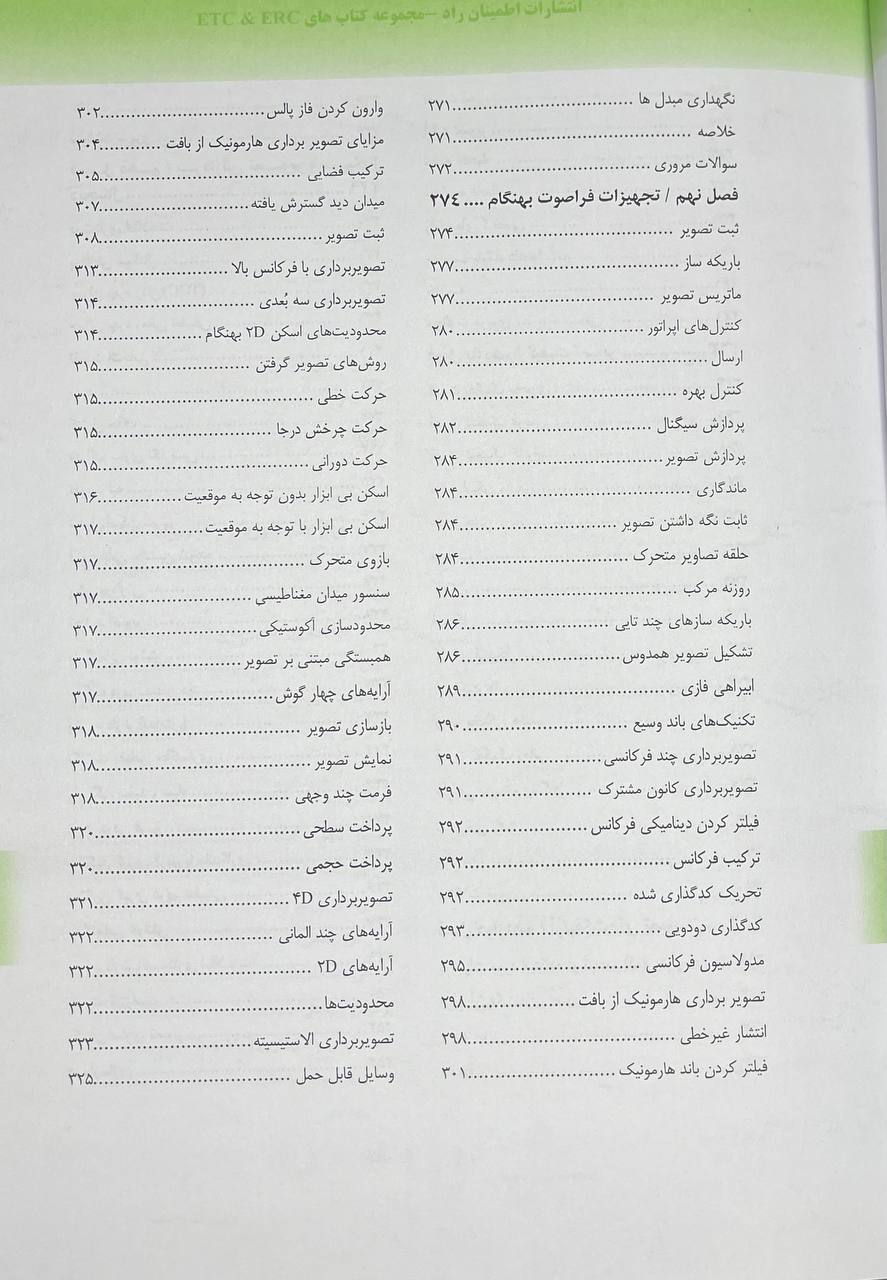 انتشارات اطمینان راد –مجموعه کتاب های ETC & ERC
نگهداری مبدل ها ...................................۲۷۱
خلاصه ..............................................۲۷۱
سوالات مروری ......................................۲۷۲
فصل نهم / تجهیزات فراصوت بهنگام .... ۲۷٤
ثبت تصویر ..........................................۲۷۴
باریکه ساز ...........................................۲۷۷
ماتریس تصویر ......................................۲۷۷
کنترل‌های اپراتور ....................................۲۸۰
ارسال ................................................۲۸۰
کنترل بهره ...........................................۲۸۱
پردازش سیگنال .....................................۲۸۲
پردازش تصویر.......................................۲۸۴
ماندگاری .............................................۲۸۴
ثابت نگه داشتن تصویر ..............................۲۸۴
حلقه تصاویر متحرک ................................۲۸۴
روزنه مرکب ..........................................۲۸۵
باریکه سازهای چند تایی ............................۲۸۶
تشکیل تصویر همدوس...............................۲۸۶
ابیراهی فازی .........................................۲۸۹
تکنیک‌های باند وسیع ................................۲۹۰
تصویربرداری چند فرکانسی..........................۲۹۱
تصویربرداری کانون مشترک .........................۲۹۱
فیلتر کردن دینامیکی فرکانس .......................۲۹۲
ترکیب فرکانس .......................................۲۹۲
تحریک کدگذاری شده ...............................۲۹۲
کدگذاری دودویی .....................................۲۹۳
مدولاسیون فرکانسی .................................۲۹۵
تصویر برداری هارمونیک از بافت .....................۲۹۸
انتشار غیرخطی .......................................۲۹۸
فیلتر کردن باند هارمونیک ............................۳۰۱
وارون کردن فاز پالس................................۳۰۲
مزایای تصویر برداری هارمونیک از بافت ............۳۰۴
ترکیب فضایی ........................................۳۰۵
میدان دید گسترش یافته.............................۳۰۷
ثبت تصویر ...........................................۳۰۸
تصویربرداری با فرکانس بالا ..........................۳۱۳
تصویربرداری سه بُعدی ..............................۳۱۴
محدودیت‌های اسکن ۲D بهنگام ....................۳۱۴
روش‌های تصویر گرفتن ..............................۳۱۵
حرکت خطی ..........................................۳۱۵
حرکت چرخش درجا .................................۳۱۵
حرکت دورانی ........................................۳۱۵
اسکن بی ابزار بدون توجه به موقعیت ................۳۱۶
اسکن بی ابزار با توجه به موقعیت....................۳۱۷
بازوی متحرک ........................................۳۱۷
سنسور میدان مغناطیسی .............................۳۱۷
محدودسازی آکوستیکی...............................۳۱۷
همبستگی مبتنی بر تصویر ...........................۳۱۷
آرایه‌های چهار گوش..................................۳۱۷
بازسازی تصویر .......................................۳۱۸
نمایش تصویر ........................................۳۱۸
فرمت چند وجهی ....................................۳۱۸
پرداخت سطحی ......................................۳۲۰
پرداخت حجمی ......................................۳۲۰
تصویربرداری ۴D .....................................۳۲۱
آرایه‌های چند المانی .................................۳۲۲
آرایه‌های ۲D .........................................۳۲۲
محدودیت‌ها..........................................۳۲۲
تصویربرداری الاستیسیته.............................۳۲۳
وسایل قابل حمل .....................................۳۲۵